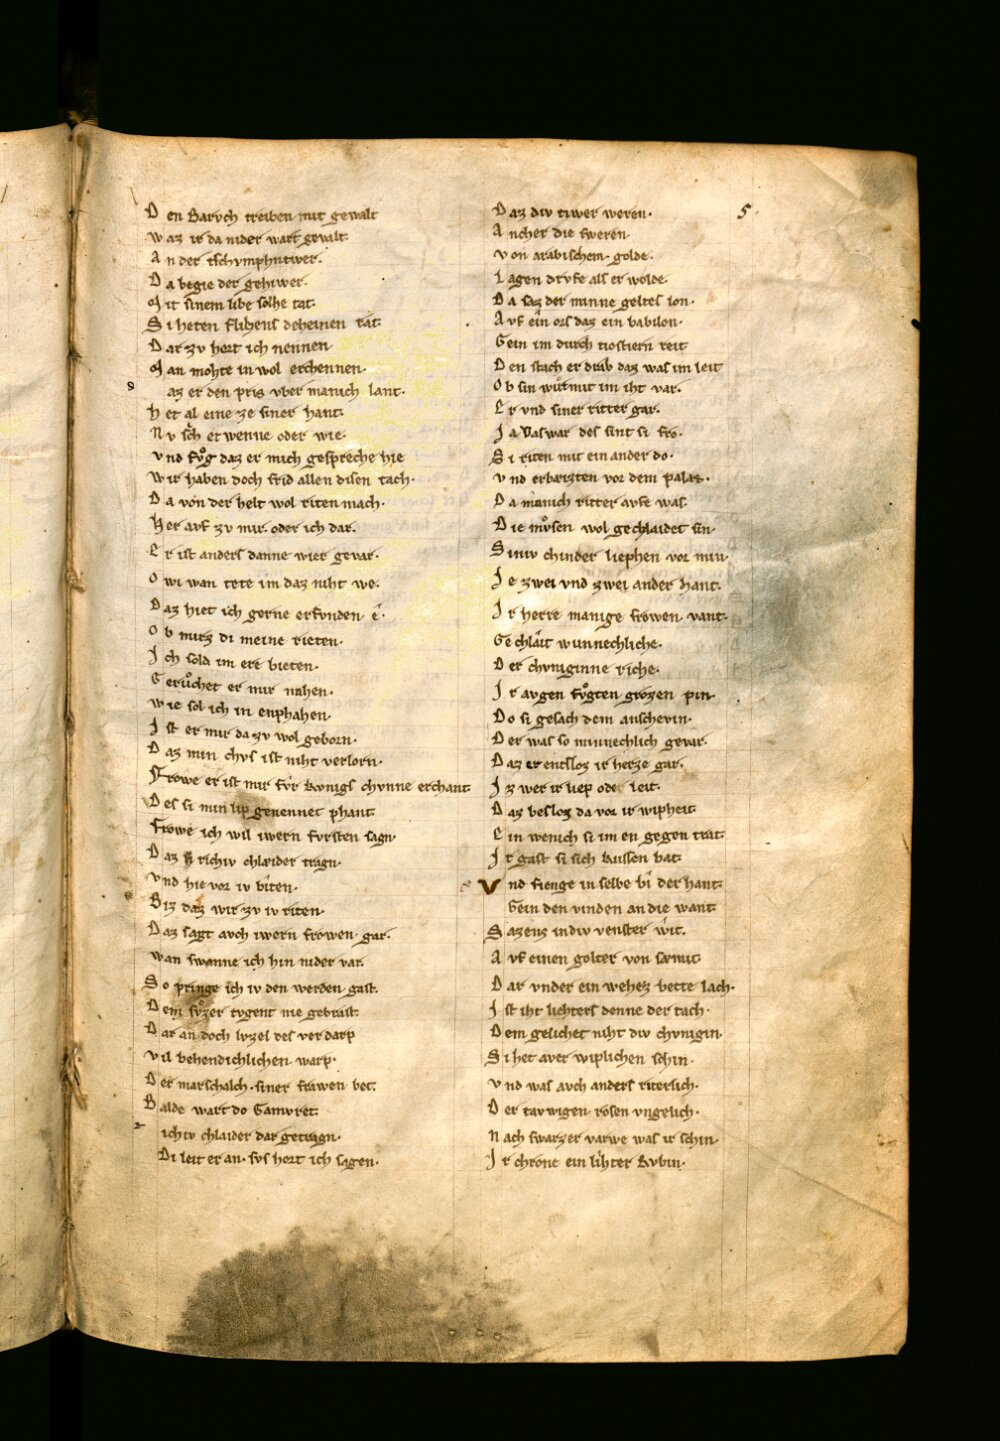 Den Barvch treiben mit gewalt
waz ir da nider wart gevalt.
An der tschymphntwer.
Da begie der gehiwer.
Mit sinem libe solhe tat.
Si heten flihens deheinen rat.
Dar zv hort ich nennen
Man mohte in wol erchennen.
s
az er den pris vber manich lant.
het al eine ze siner hant.
Nv sch et wenne oder wie.
vnd fvͦg daz er mich gespreche hie
wir haben doch frid allen disen tach.
Da von der helt wol riten mach.
her avf zv mir. oder ich dar.
Er ist anders danne wier gevar.
Owi wan tete im daz niht we.
Daz hiet ich gerne erfvnden. ê.
Ob mirz di meine rieten.
Ich sold im ere bieten.
Gerůchet er mir nahen.
wie sol ich in enphahen.
Ist er mir da zv wol geborn.
Daz min chvs ist niht verlorn.
Frowe er ist mir fvr kvnigs chvnne erchant
Des si min lip genennet phant
Frowe ich wil iwern fvrsten sagn.
Daz si richiv chlæider tragn.
vnd hie vor iv biten.
Biz daz wir zv iv riten.
Daz sagt avch iwern frowen. gar.
wan swanne ich hin nider var.
So pringe ich iv den werden gast.
Dem svͦzer tvgent nie gebrast.
Dar an doch lvzel des verdarp
vil behendichlichen warp.
Der marschalch. siner frawen bet.
Balde wart do Gamvret.
r
ichiv chlaider dar getragn.
Di leit er an. svs hort ich sagen.
5.
Daz div tiwer weren.
Ancher die sweren
von arabischem. golde.
Lagen drvfe alls er wolde.
Da saz der minne geltes lon.
Avf ein ors daz ein babilon.
Gein im durch tiostiern reit
Den stach er drab daz was im leit
Ob sin wirt mit im iht var.
Er vnd siner ritter gar.
Ja vaswar des sint si fro.
Si riten mit ein ander do.
vnd erbeizten vor dem palas.
Da manich ritter avfe was.
Die mvͦsen wol gechlaidet sin.
Siniv chinder liephen vor min.
Je zwei vnd zwei ander hant.
Ir herre manige frowen. vant.
Gechlait wunnechliche.
Der chvniginne riche.
Ir avgen fvͦgten grozen pin.
Do si gesach dem anschevin.
Der was so minnechlich gevar.
Daz er entsloz ir herze gar.
Iz wer ir liep oder leit.
Daz besloz da vor ir wipheit.
Ein wenich si im en gegen trat.
Ir gast si sich kussen bat.
vnd fienge in selbe bi der hant.
Gein den vinden an die want
Sazens indiv venster wit.
Avf einen golter von samit.
Dar vnder ein wehez bette lach.
Ist iht lichters denne der tach.
Dem gelichet niht div chvnigin.
Si het aver wiplichen schin.
vnd was avch anders riterlich.
Der tavwigen rosen vngelich.
Nach swarzer varwe was ir schin.
Ir chrone ein lihter Rvbin.